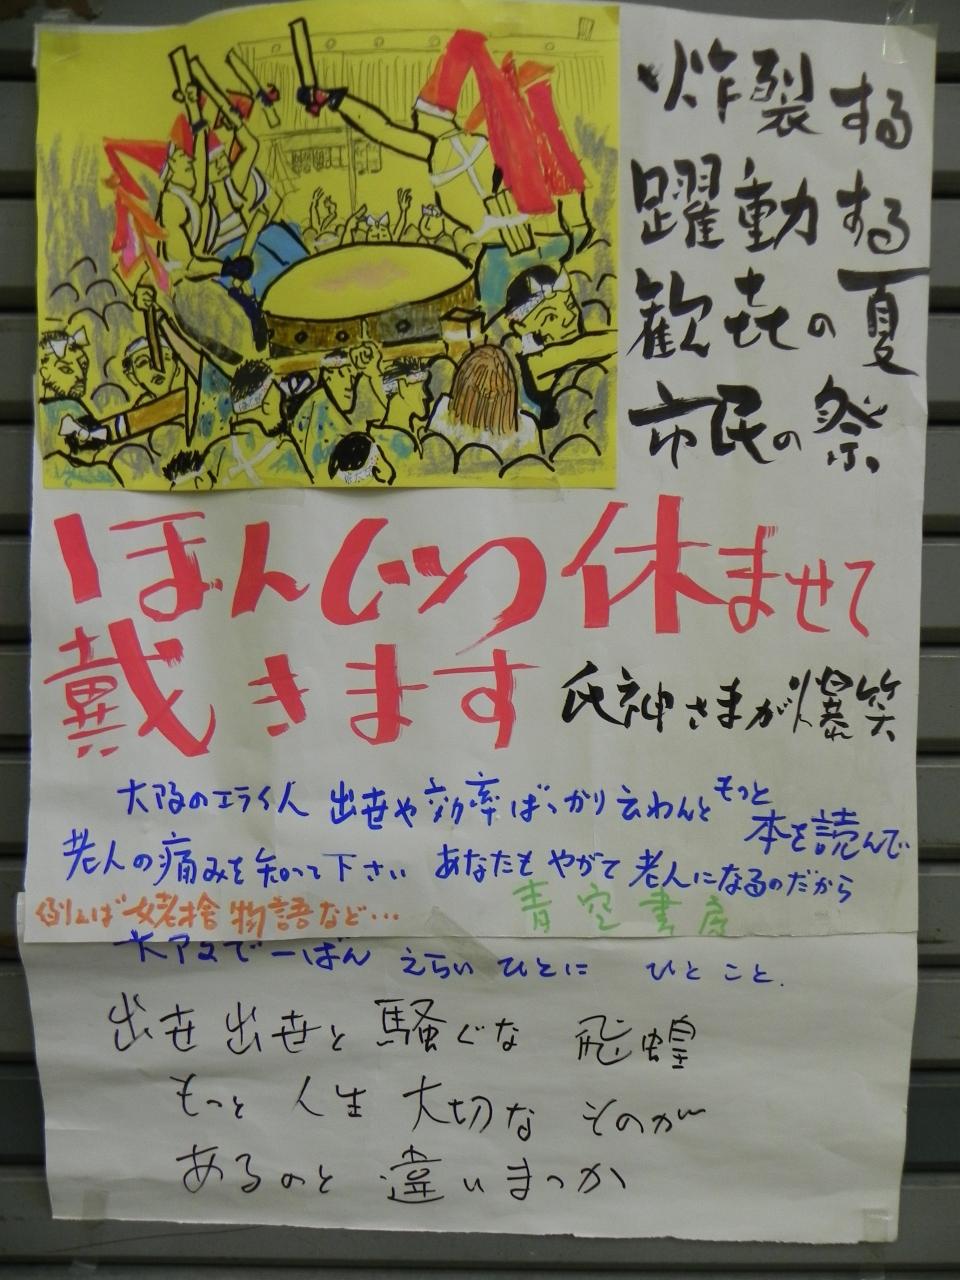 炸裂する
躍動する
歓㐂の夏
市民の祭
ほんじつ休ませて
戴きます
氏神さまが爆笑
大阪のエライ人 出世や効率ばっかり云わんともっと
本を読んで
老人の痛みを知って下さい あなたも やがて 老人になるのだから
例えば 姥捨物語など…
青空書房
大阪で一ばん えらい ひとに ひとこと.
出世出世と騒ぐな 飛蝗
もっと 人生 大切な そのが
あるのと違いまっか